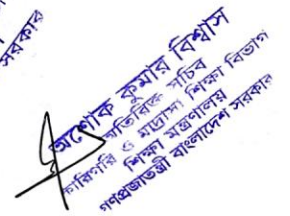 সরকার
অশোক কুমার বিশ্বাস
অতিরিক্ত সচিব
কারিগরি ও মাদ্রাসা শিক্ষা বিভাগ
শিক্ষা মন্ত্রণালয়
গণপ্রজাতন্ত্রী বাংলাদেশ সরকার